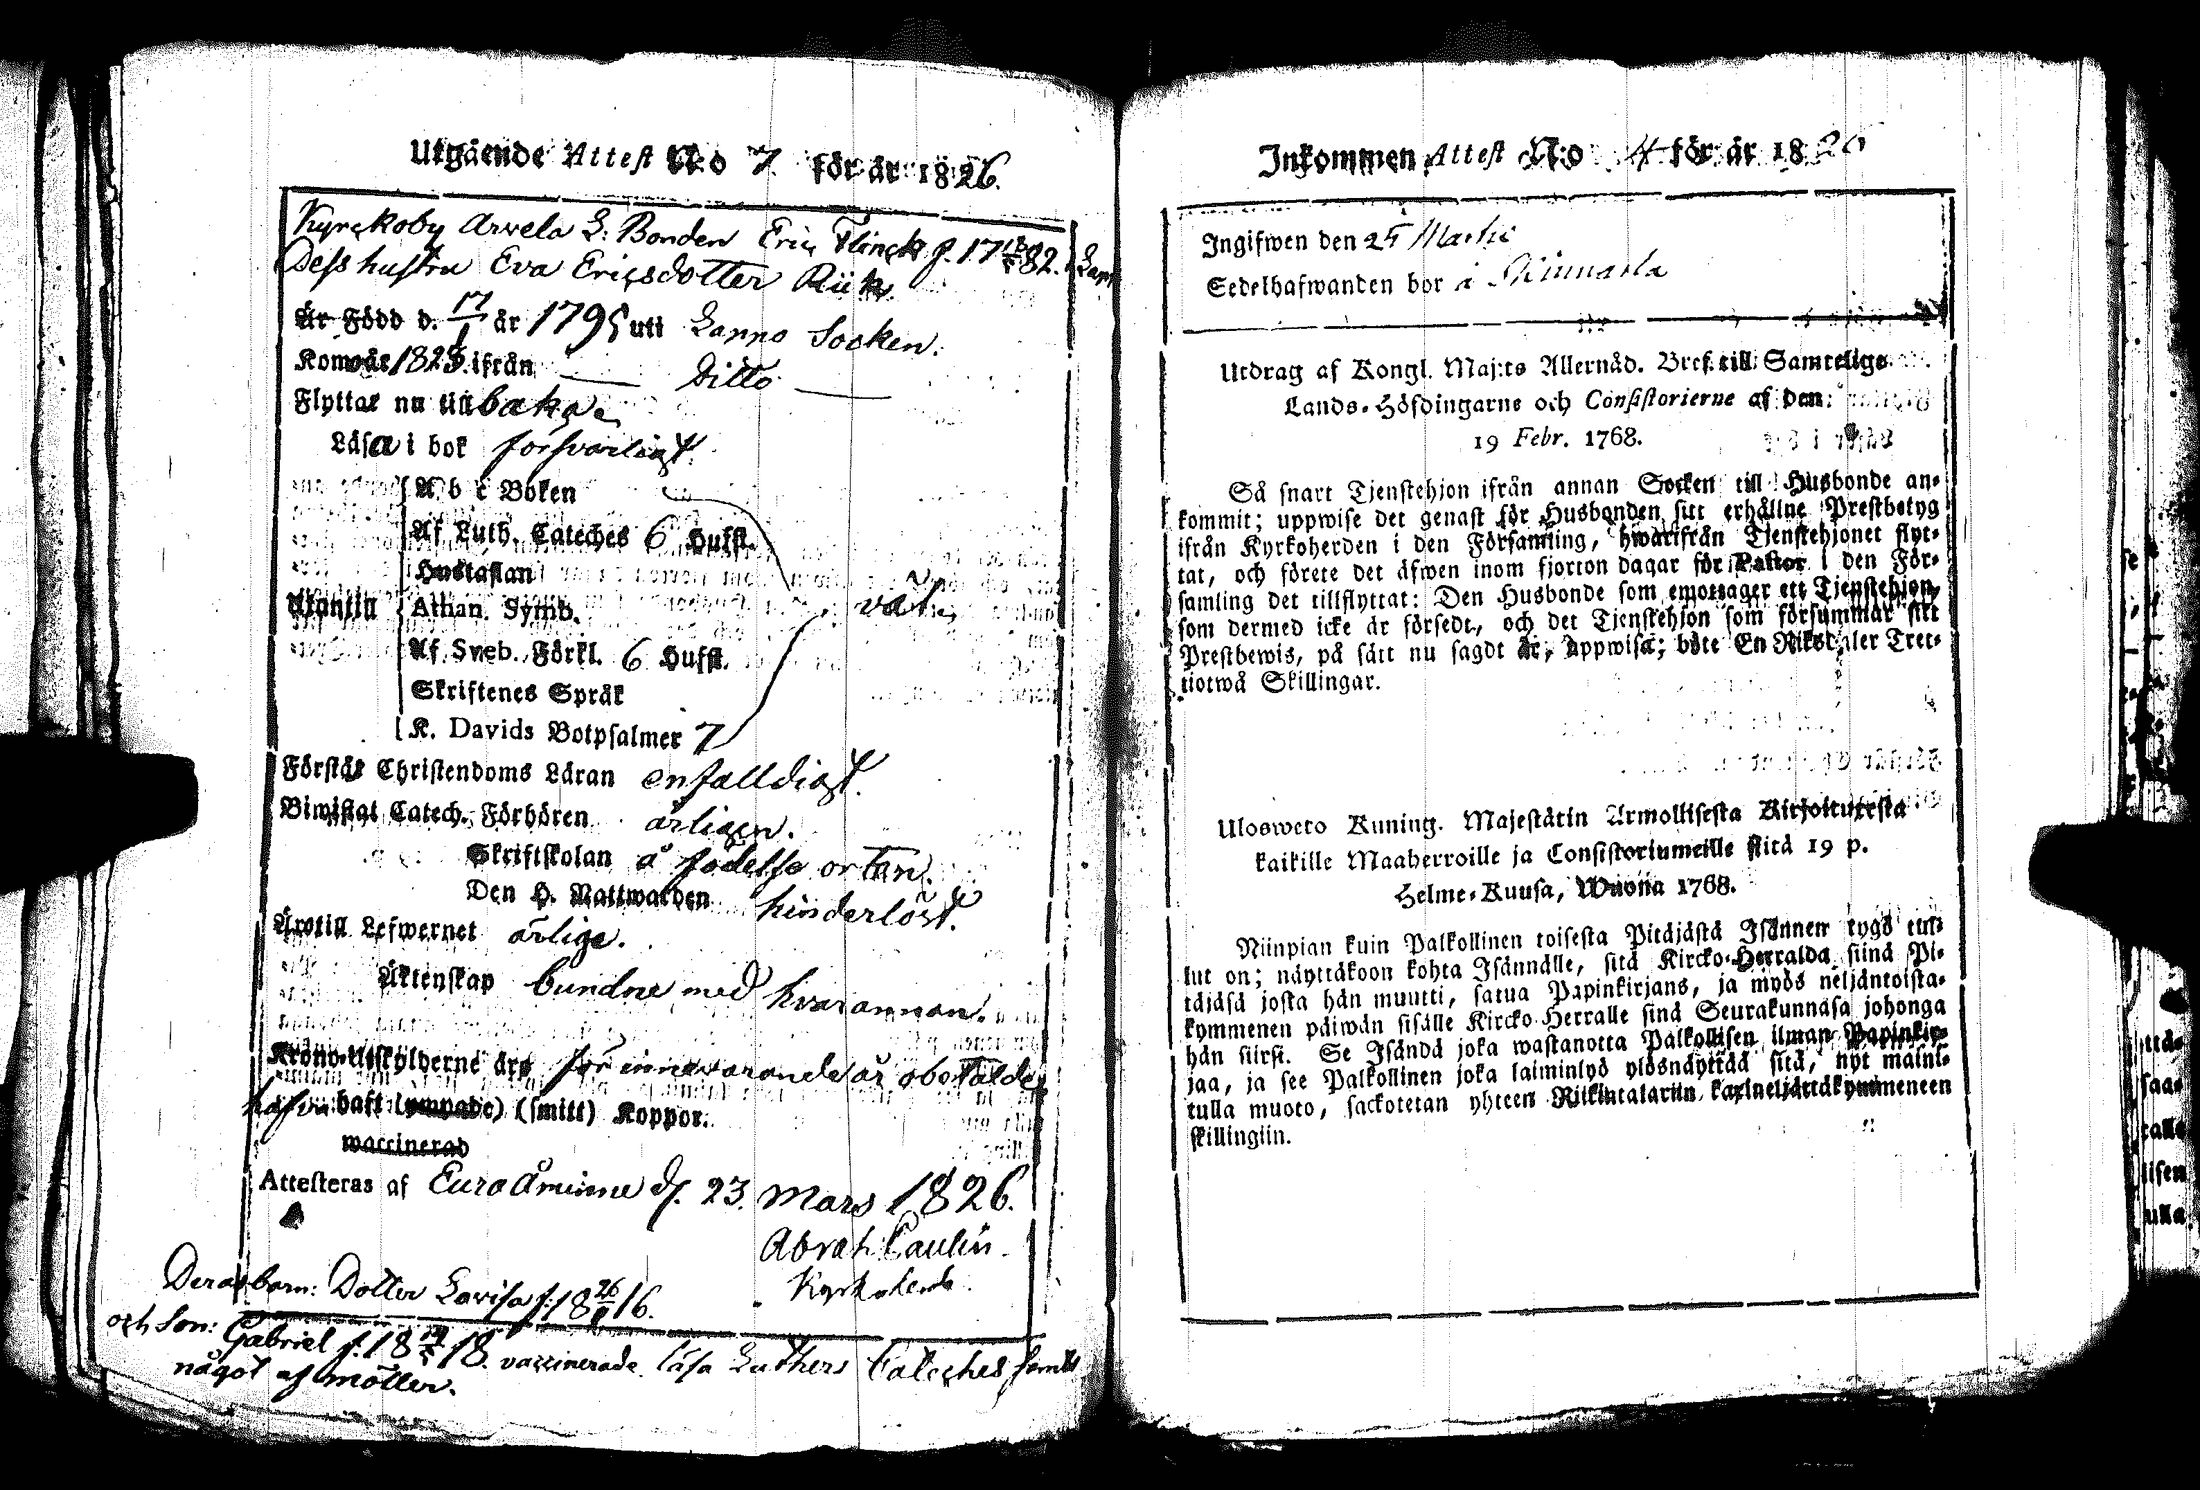 Utgående Attest N:o 7. för år 1826.
Kyrckoby Arvela L: Bonden Eric Flinck f. 17 82.
Dess hustru Eva Ericsdotter Riik.
Är Född d. 17/1 år 1795 uti Lanno Socken.
Kom år 1825 ifrån Ditto
Flyttar nu till baka
Läsa i bok försvarligt.
A b c Boken
Af Luth. Cateches 6 Hufst.
Hustaflan
Utantill Athan. Symb.
Af Sveb. Förkl. 6 Hufst.
Skriftenes Språk
K. Davids Botpsalmer 7
Förstår Christendoms Läran enfalldigt.
Biwistat Catech. Förhören årligen.
Skriftskolan å födelse orten.
Den H. Nattwarden hinderlöst.
Äro till Lefwernet ärlige.
Äktenskap bundne med hvarannan.
Krono-Utskylderne äro för innevarande år obetalde
hafva haft (ympade) (smitt) Koppor.
waccinerad
Attesteras af Eura Åminne d. 23. Mars 1826.
Abrah. Paulin.
Kyrkoherde
Deras barn: Dotter Lovisa f. 18 26/9 16.
och Son: Gabriel f. 18 18. vaccinerade. läsa Luthers Cateches samt
något af möller.
Inkommen Attest N:o 4 för år 1826
Ingifwen den 25 Martii
Sedelhafwanden bor i Kiimarla
Utdrag af Kongl. Maj:ts Allernåd. Bref till Samtelige
Lands-Höfdingarne och Consistorierne af den
19 Febr. 1768.
Så snart Tjenstehjon ifrån annan Socken till Husbonde an-
kommit; uppwise det genast för Husbonden sitt erhållne Prestbetyg
ifrån Kyrkoherden i den Församling, hwarifrån Tjenstehjonet flyt-
tat, och förete det äfwen inom fjorton dagar för Pastor i den För-
samling det tillflyttat: Den Husbonde som emottager ett Tjenstehjon,
som dermed icke är försedt, och det Tjenstehjon som försummar sitt
Prestbewis, på sätt nu sagdt är, uppwisa; böte En Riksdaler Tret-
tiotwå Skillingar.
Ulosweto Kuning. Majestätin Armollisesta Kirjoituxesta
kaikille Maaherroille ja Consistoriumeille siitä 19 p.
Helme-Kuusa, Wuonna 1768.
Niinpian kuin Palkollinen toisesta Pitäjästä Isännen tygö tul-
lut on; näyttäkoon kohta Isännälle, sitä Kircko-Herralda siinä Pi-
täjäsä josta hän muutti, satua Papinkirjans, ja myös neljäntoista-
kymmenen päiwän sisälle Kircko-Herralle sinä Seurakunnasa johonga
hän siirsi. Se Isändä joka wastanotta Palkollisen ilman Papinkir-
jaa, ja see Palkollinen joka laiminlyö ylösnäyttää sitä, nyt maini-
tulla muoto, sackotetan yhteen Riikintalariin kaxineljättäkymmeneen
skillingiin.